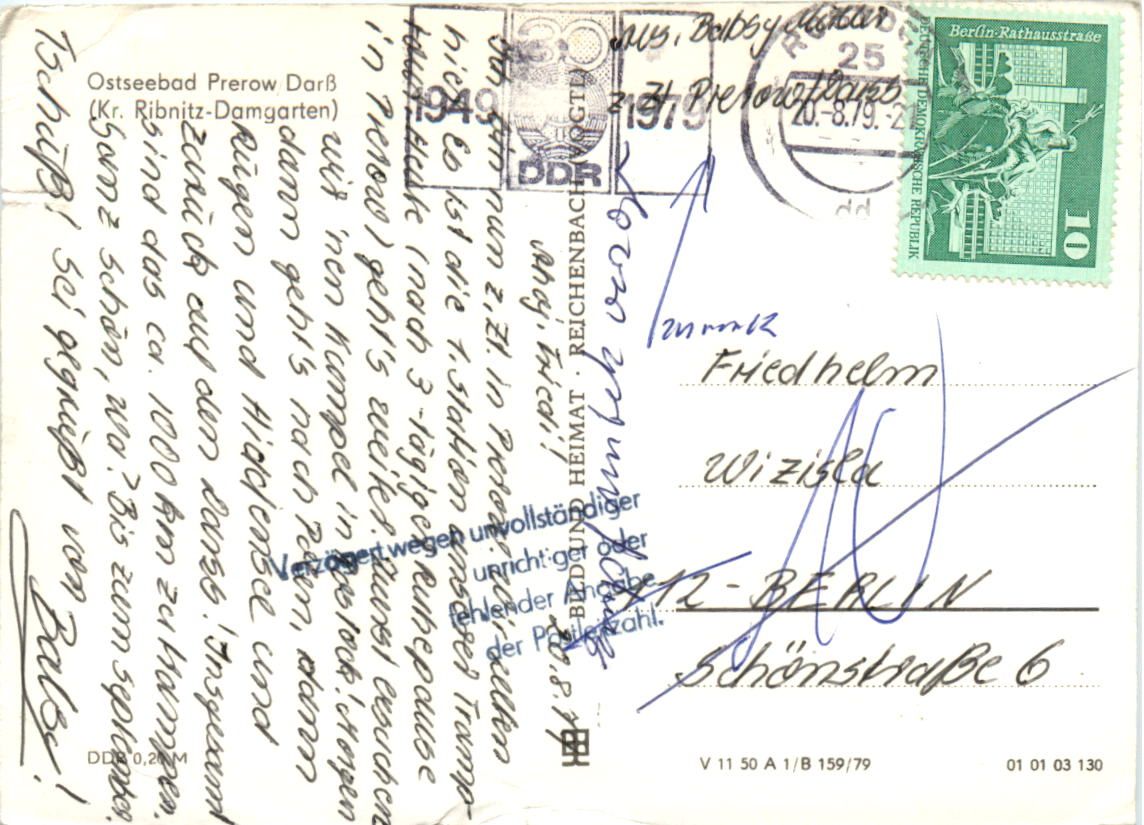 Ostseebad Prerow Darß
(Kr. Ribnitz-Damgarten)
20.8.79
Ahoj, Friedl!
Bin nun z.Zt. in Prerow bei
hier. Es ist die 1. Station unserer Tramp-
tour. Heute (nach 3-tägiger Ruhepause
in Prerow) geht's weiter. Zuerst besuchen
wir 'nen Kumpel in Rostock! Morgen
dann geht's nach Polen, dann
Rügen und Hiddensee und
zurück auf den Darss! Insgesamt
sind das ca. 1000 km zu trampen.
Ganz schön, wa? Bis zum September.
Tschüß! Sei gegrüßt von
Babsy!
DDR 0,20 M
BILD UND HEIMAT · REICHENBACH (VOGTL)
Verzögert wegen unvollständiger
unrichtiger oder
fehlender Angabe
der Postleitzahl.
1949
30
DDR
1979
Babsy
z. Zt. Prerow
25
20.-8.79.-2
dd
Berlin-Rathausstraße
DEUTSCHE DEMOKRATISCHE REPUBLIK
10
zurück
Friedhelm
Wizisla
112-BERLIN
Schönstraße 6
V 11 50 A 1/B 159/79
01 01 03 130